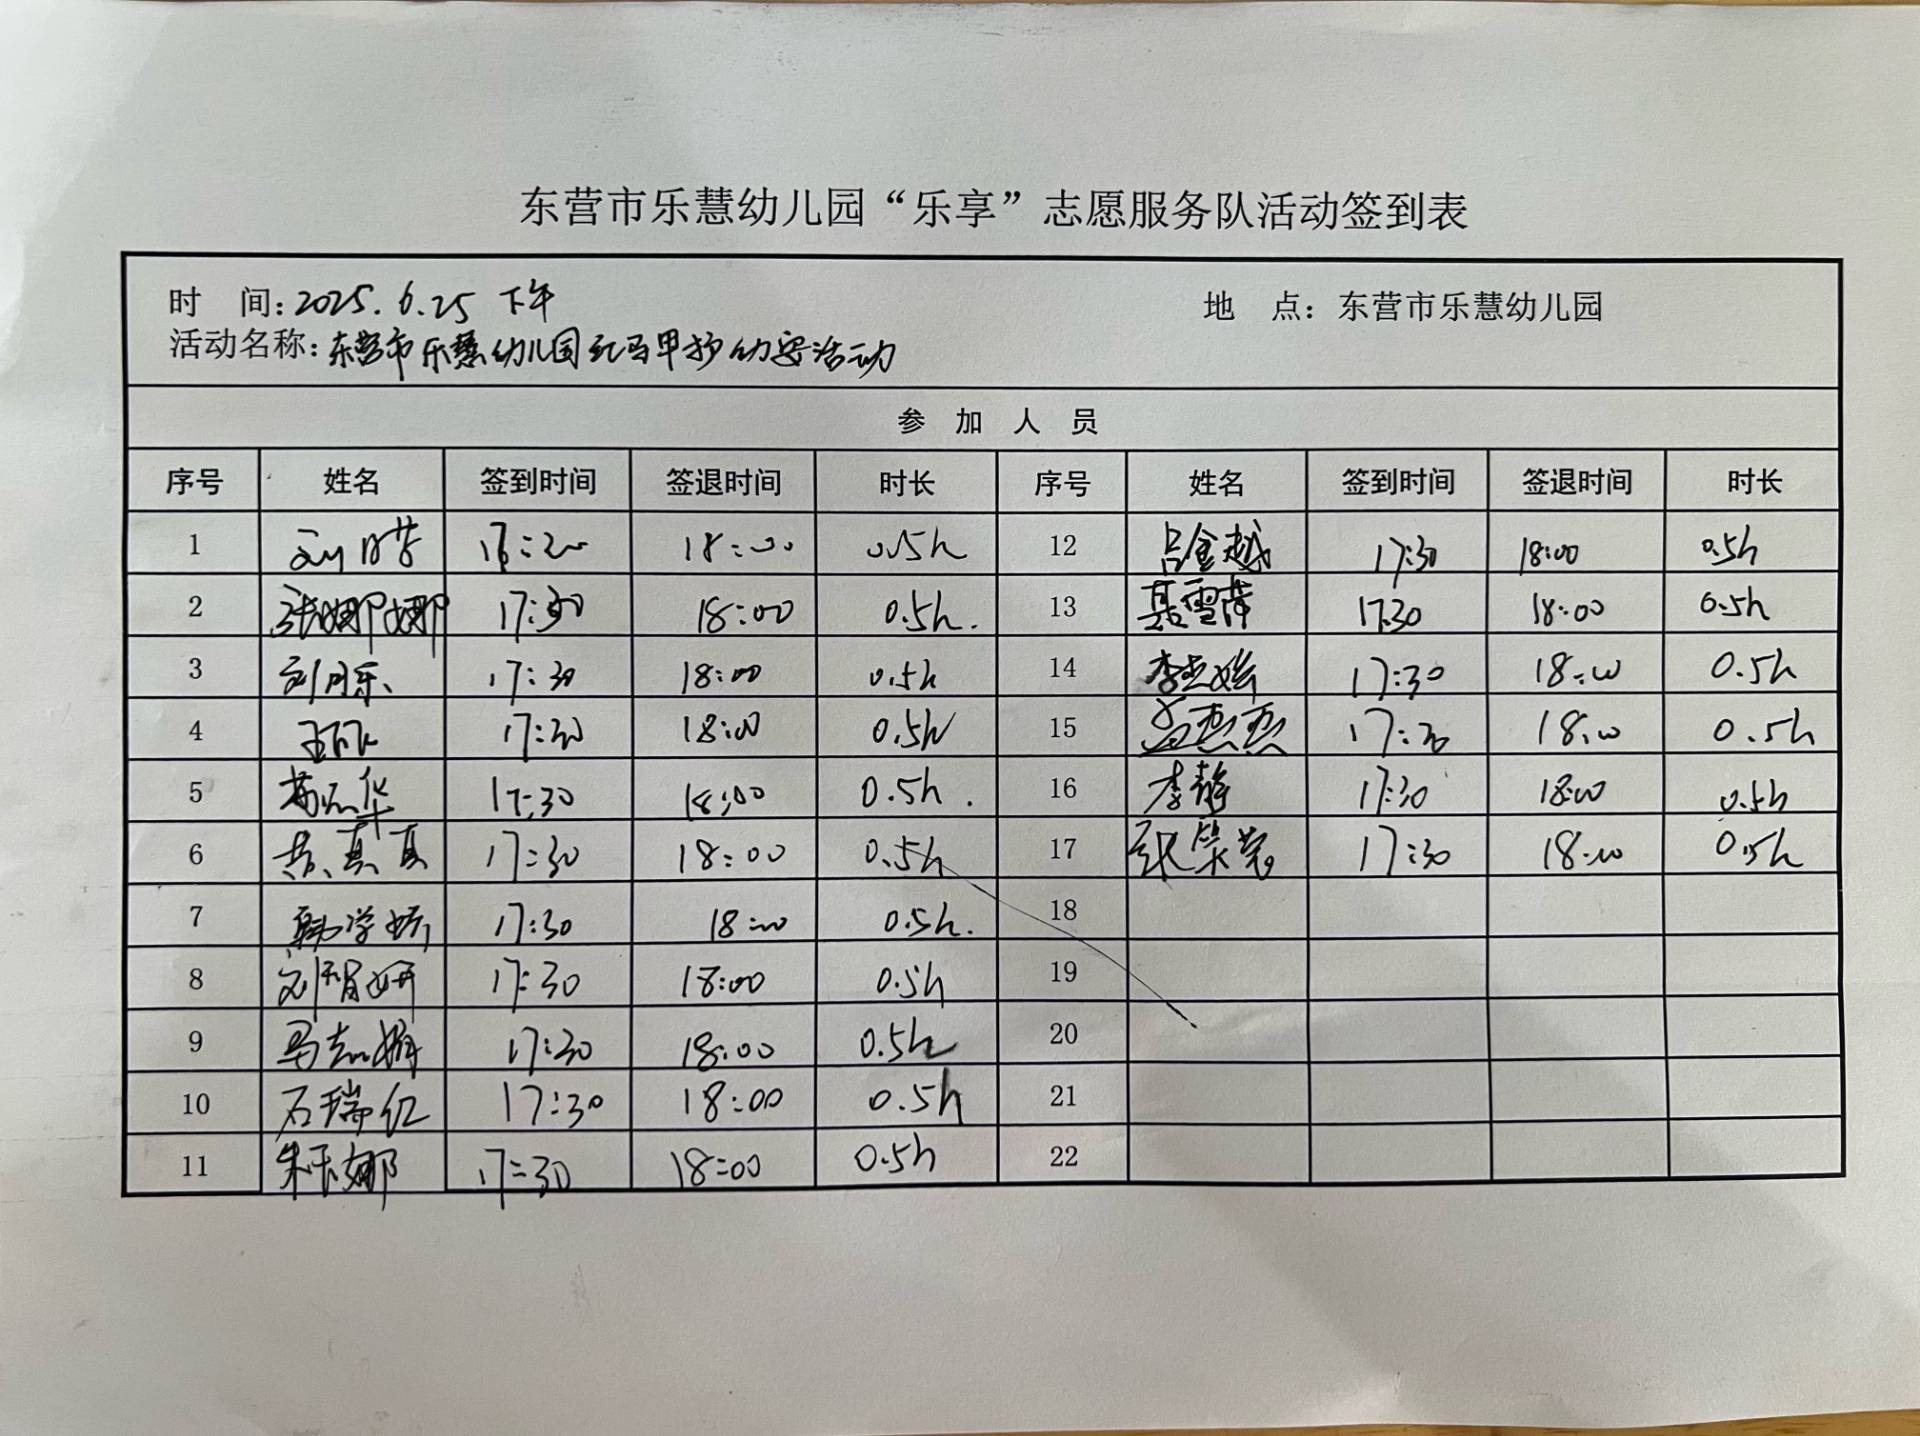 东营市乐慧幼儿园“乐享”志愿服务队活动签到表
时 间：2025.6.25 下午 地 点：东营市乐慧幼儿园
活动名称：东营市乐慧幼儿园红马甲护幼安活动
参 加 人 员
序号 姓名 签到时间 签退时间 时长 序号 姓名 签到时间 签退时间 时长
1 18:00 0.5h 12 吕金越 17:30 18:00 0.5h
2 张娜娜 17:30 18:00 0.5h. 13 聂雪萍 17:30 18:00 0.5h
3 刘月乐 17:30 18:00 0.5h 14 17:30 18:00 0.5h
4 17:30 18:00 0.5h 15 孟燕燕 17:30 18:00 0.5h
5 17:30 18:00 0.5h. 16 李静 17:30 18:00 0.5h
6 17:30 18:00 0.5h 17 张荣荣 17:30 18:00 0.5h
7 韩学娇 17:30 18:00 0.5h. 18
8 17:30 18:00 0.5h 19
9 17:30 18:00 0.5h 20
10 石瑞红 17:30 18:00 0.5h 21
11 17:30 18:00 0.5h 22